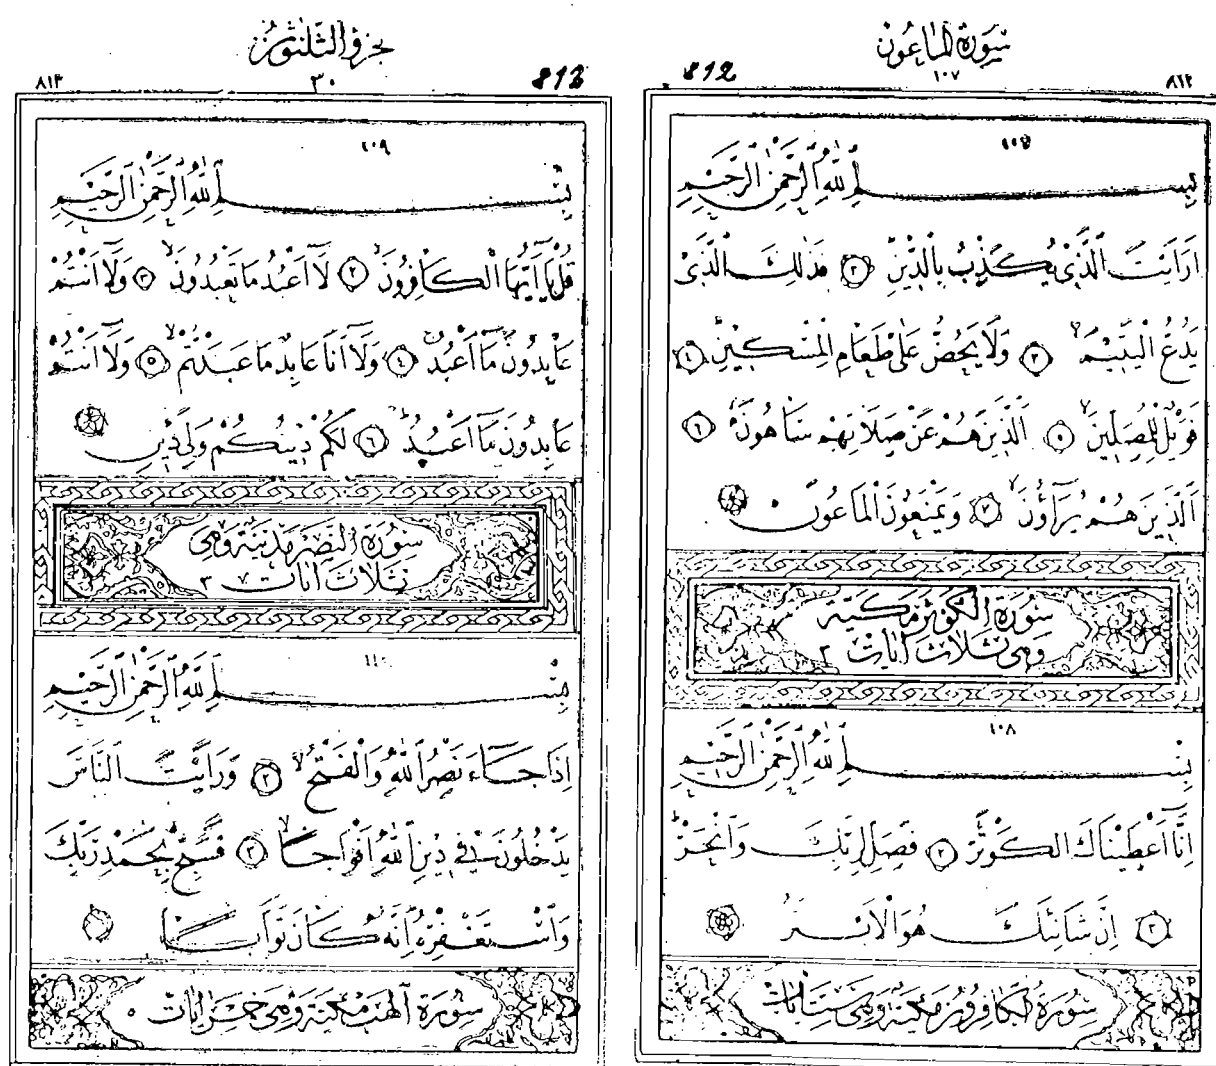 سورة الماعون
٨١٢ ١٠٧ 812
بِسْمِ اللّٰهِ الرَّحْمٰنِ الرَّحٖيمِ
اَرَاَيْتَ الَّذٖي يُكَذِّبُ بِالدّٖينِ ٢ فَذٰلِكَ الَّذٖي
يَدُعُّ الْيَتٖيمَ ٣ وَلَا يَحُضُّ عَلٰى طَعَامِ الْمِسْكٖينِ ٤
فَوَيْلٌ لِلْمُصَلّٖينَ ٥ اَلَّذٖينَ هُمْ عَنْ صَلَاتِهِمْ سَاهُونَ ٦
اَلَّذٖينَ هُمْ يُرَآؤُنَ ٧ وَيَمْنَعُونَ الْمَاعُونَ
سُورَةُ الْكَوْثَرِ مَكِّيَّةٌ
وَهِيَ ثَلَاثُ اٰيَاتٍ ٣
١٠٨
بِسْمِ اللّٰهِ الرَّحْمٰنِ الرَّحٖيمِ
اِنَّآ اَعْطَيْنَاكَ الْكَوْثَرَ ٢ فَصَلِّ لِرَبِّكَ وَانْحَرْ
٣ اِنَّ شَانِئَكَ هُوَ الْاَبْتَرُ
سُورَةُ الْكَافِرُونَ مَكِّيَّةٌ وَهِيَ سِتُّ اٰيَاتٍ
الجزؤ الثلثون
813 ٣٠ ٨١٣
١٠٩
بِسْمِ اللّٰهِ الرَّحْمٰنِ الرَّحٖيمِ
قُلْ يَآ اَيُّهَا الْكَافِرُونَ ٢ لَآ اَعْبُدُ مَا تَعْبُدُونَ ٣ وَلَآ اَنْتُمْ
عَابِدُونَ مَآ اَعْبُدُ ٤ وَلَآ اَنَا عَابِدٌ مَا عَبَدْتُمْ ٥ وَلَآ اَنْتُمْ
عَابِدُونَ مَآ اَعْبُدُ ٦ لَكُمْ دٖينُكُمْ وَلِيَ دٖينِ
سُورَةُ النَّصْرِ مَدَنِيَّةٌ وَهِيَ
ثَلَاثُ اٰيَاتٍ ٣
١١٠
بِسْمِ اللّٰهِ الرَّحْمٰنِ الرَّحٖيمِ
اِذَا جَآءَ نَصْرُ اللّٰهِ وَالْفَتْحُ ٢ وَرَاَيْتَ النَّاسَ
يَدْخُلُونَ فٖي دٖينِ اللّٰهِ اَفْوَاجًا ٣ فَسَبِّحْ بِحَمْدِ رَبِّكَ
وَاسْتَغْفِرْهُ اِنَّهُ كَانَ تَوَّابًا
سُورَةُ الهب مَكِّيَّةٌ وَهِيَ خَمْسُ اٰيَاتٍ ٥